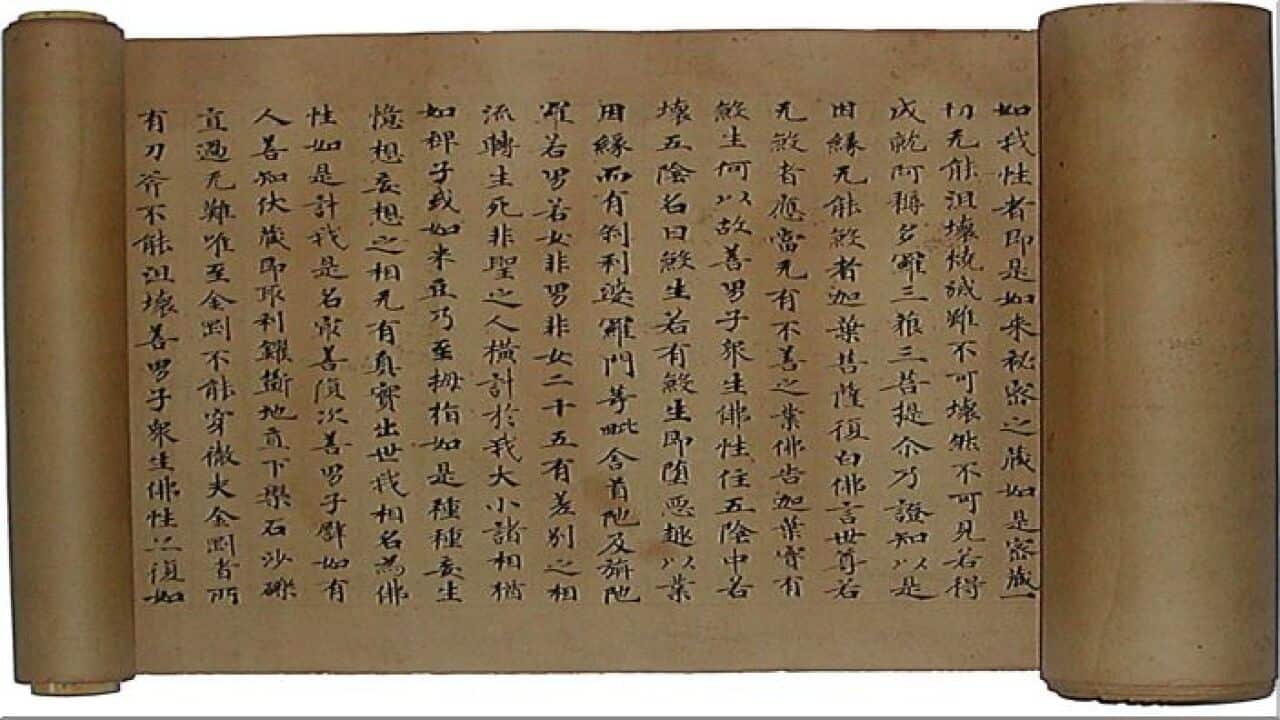 如我性者即是如来秘密之藏如是密藏一
切无能沮壞燒滅雖不可壞然不可見若得
成就阿耨多羅三藐三菩提尒乃證知以是
因緣无能煞者迦葉菩薩復白佛言世尊若
无煞者應當无有不善之業佛告迦葉實有
煞生何以故善男子眾生佛性住五陰中若
壞五陰名曰煞生若有煞生即墮惡趣以業
因緣而有刹利婆羅門等毗舍首陁及旃陁
羅若男若女非男非女二十五有差别之相
流轉生死非聖之人橫計於我大小諸相猶
如稗子或如米豆乃至拇指如是種種妄生
憶想妄想之相无有真實出世我相名為佛
性如是計我是名冣善復次善男子譬如有
人善知伏藏即取利钁斸地直下磐石沙礫
直過无難唯至金剛不能穿徹夫金剛者所
有刀斧不能沮壞善男子眾生佛性亦復如